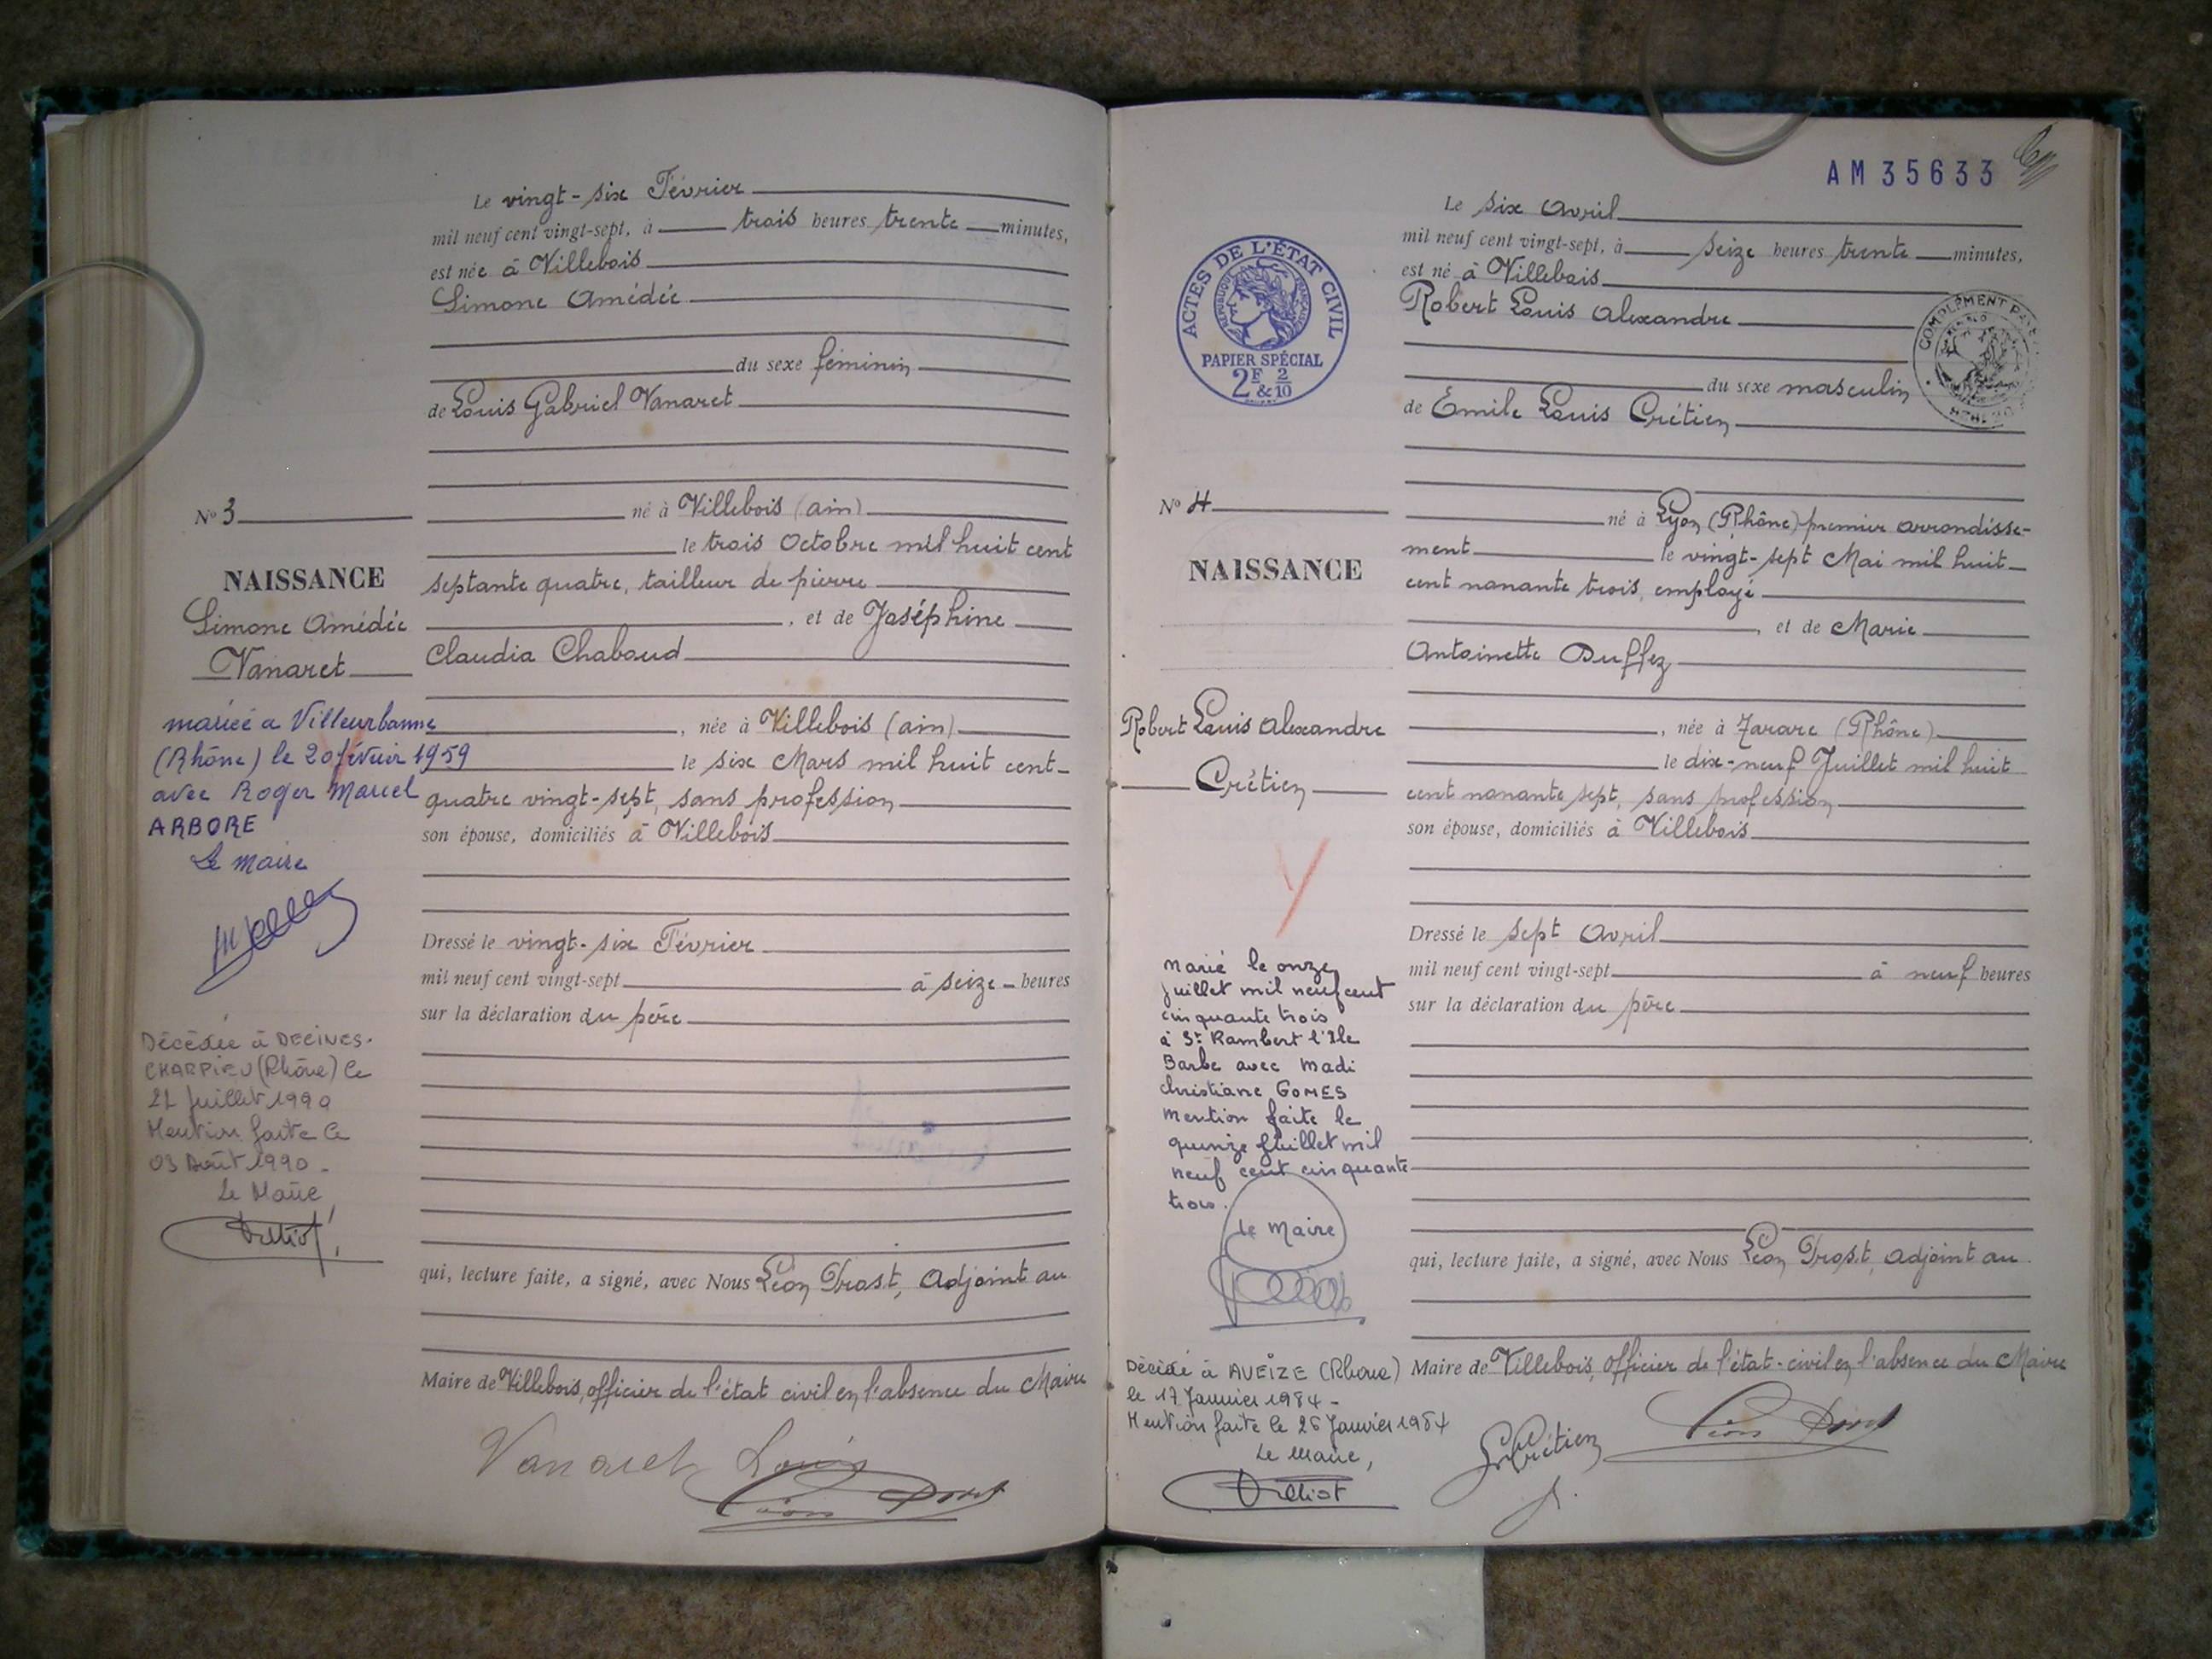 Le vingt-six Février
mil neuf cent vingt-sept, à trois heures trente minutes,
est née à Villebois
Simone Amédée
du sexe féminin
de Louis Gabriel Vanaret
né à Villebois (ain)
le trois Octobre mil huit cent
septante quatre, tailleur de pierre
, et de Joséphine
Claudia Chaboud
, née à Villebois (ain)
le six Mars mil huit cent
quatre vingt-sept, sans profession
son épouse, domiciliés à Villebois
Dressé le vingt-six Février
mil neuf cent vingt-sept à seize heures
sur la déclaration du père
qui, lecture faite, a signé, avec Nous Léon Trost, Adjoint au
Maire de Villebois, officier de l'état civil en l'absence du Maire
Vanaret Louis
Nº 3
NAISSANCE
Simone Amédée
Vanaret
mariée a Villeurbanne
(Rhône) le 20 février 1959
avec Roger Marcel
ARBORE
Le Maire
Décédée à DECINES-
CHARPIEU (Rhône) le
21 Juillet 1990
Mention faite le
03 Août 1990 -
Le Maire,
AM 35633
ACTES DE L'ÉTAT CIVIL
RÉPUBLIQUE FRANÇAISE
PAPIER SPÉCIAL
2F & 2/10
COMPLÉMENT
Le six Avril
mil neuf cent vingt-sept, à seize heures trente minutes,
est né à Villebois
Robert Louis Alexandre
du sexe masculin
de Emile Louis Crétien
né à Lyon (Rhône) premier arrondisse-
ment le vingt-sept Mai mil huit
cent nonante trois, employé
, et de Marie
Antoinette Duffez
, née à Tarare (Rhône)
le dix-neuf Juillet mil huit
cent nonante sept, sans profession
son épouse, domiciliés à Villebois
Dressé le sept Avril
mil neuf cent vingt-sept à neuf heures
sur la déclaration du père
qui, lecture faite, a signé, avec Nous Léon Trost, adjoint au
Maire de Villebois, officier de l'état-civil en l'absence du Maire
Crétien
Nº 4
NAISSANCE
Robert Louis Alexandre
Crétien
Marié le onze
juillet mil neuf cent
cinquante trois
à St Rambert l'Ile
Barbe avec Madi
Christiane GOMES
Mention faite le
quinze juillet mil
neuf cent cinquante
trois.
Le Maire
Décédé à AVEIZE (Rhône)
le 17 Janvier 1984 -
Mention faite le 26 Janvier 1984
Le Maire,